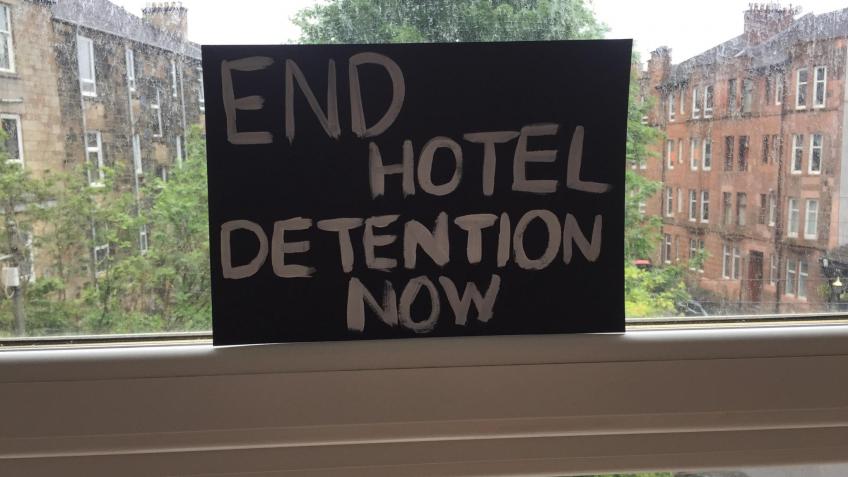 END
HOTEL
DETENTION
NOW